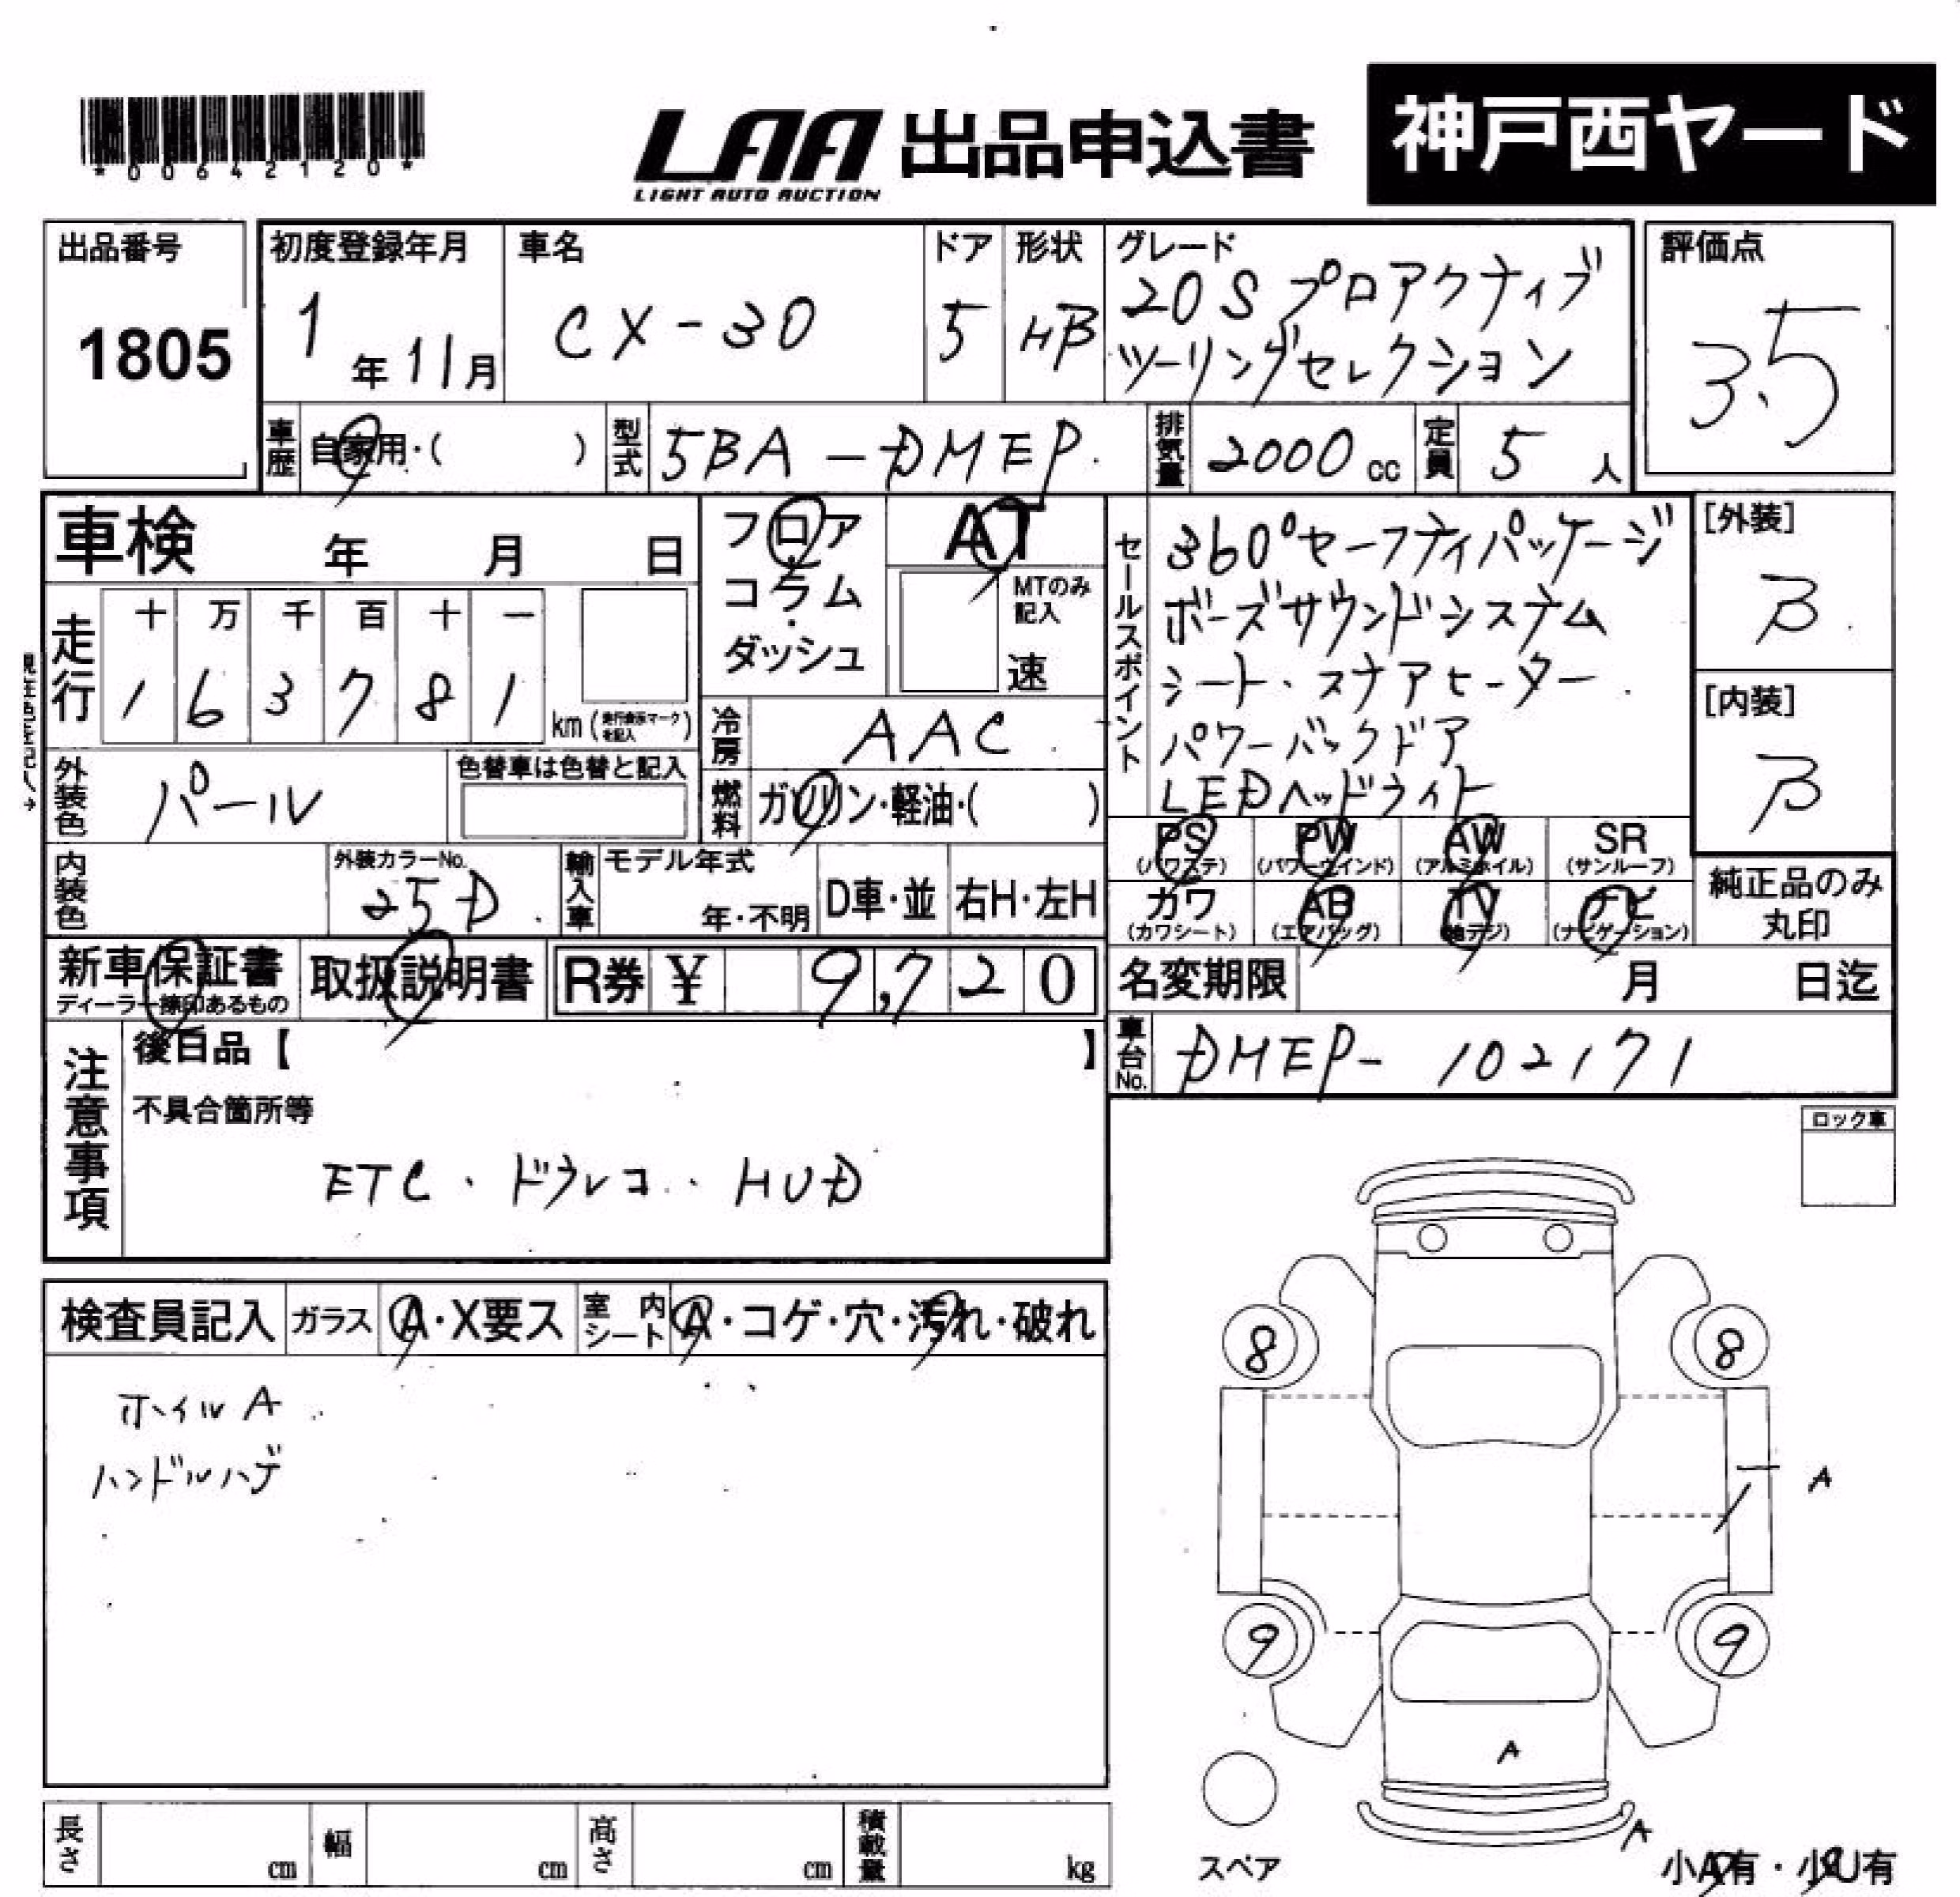 *00642120*
LAA 出品申込書
LIGHT AUTO AUCTION
神戸西ヤード
出品番号
1805
初度登録年月
1年11月
車名
CX-30
ドア
5
形状
HB
グレード
20S プロアクティブ
ツーリングセレクション
評価点
3.5
車歴
自家用・(　　)
型式
5BA-DMEP
排気量
2000cc
定員
5人
車検　年　月　日
フロア・コラム・ダッシュ
AT
MTのみ記入
速
走行
十 万 千 百 十 一
1 6 3 7 8 1
km(走行表示マークを記入)
現在色を記入→
冷房
AAC
外装色
パール
色替車は色替と記入
燃料
ガソリン・軽油・(　　)
セールスポイント
360°セーフティパッケージ
ボーズサウンドシステム
シート・ステアヒーター
パワーバックドア
LEDヘッドライト
[外装]
B
[内装]
B
内装色
外装カラーNo.
25D
輸入車
モデル年式
年・不明
D車・並
右H・左H
PS
(パワステ)
PW
(パワーウインド)
AW
(アルミホイル)
SR
(サンルーフ)
カワ
(カワシート)
AB
(エアバッグ)
TV
(地デジ)
ナビ
(ナビゲーション)
純正品のみ
丸印
新車保証書
ディーラー捺印あるもの
取扱説明書
R券 ¥ 9,720
名変期限　月　日迄
車台No.
DMEP-102171
注意事項
後日品【　　】
不具合箇所等
ETC・ドラレコ・HUD
ロック車
検査員記入
ガラス
A・X要ス
室内シート
A・コゲ・穴・汚れ・破れ
ホイルA
ハンドルハゲ
8
8
A
9
9
A
A
スペア
小A有・小U有
長さ
cm
幅
cm
高さ
cm
積載量
kg